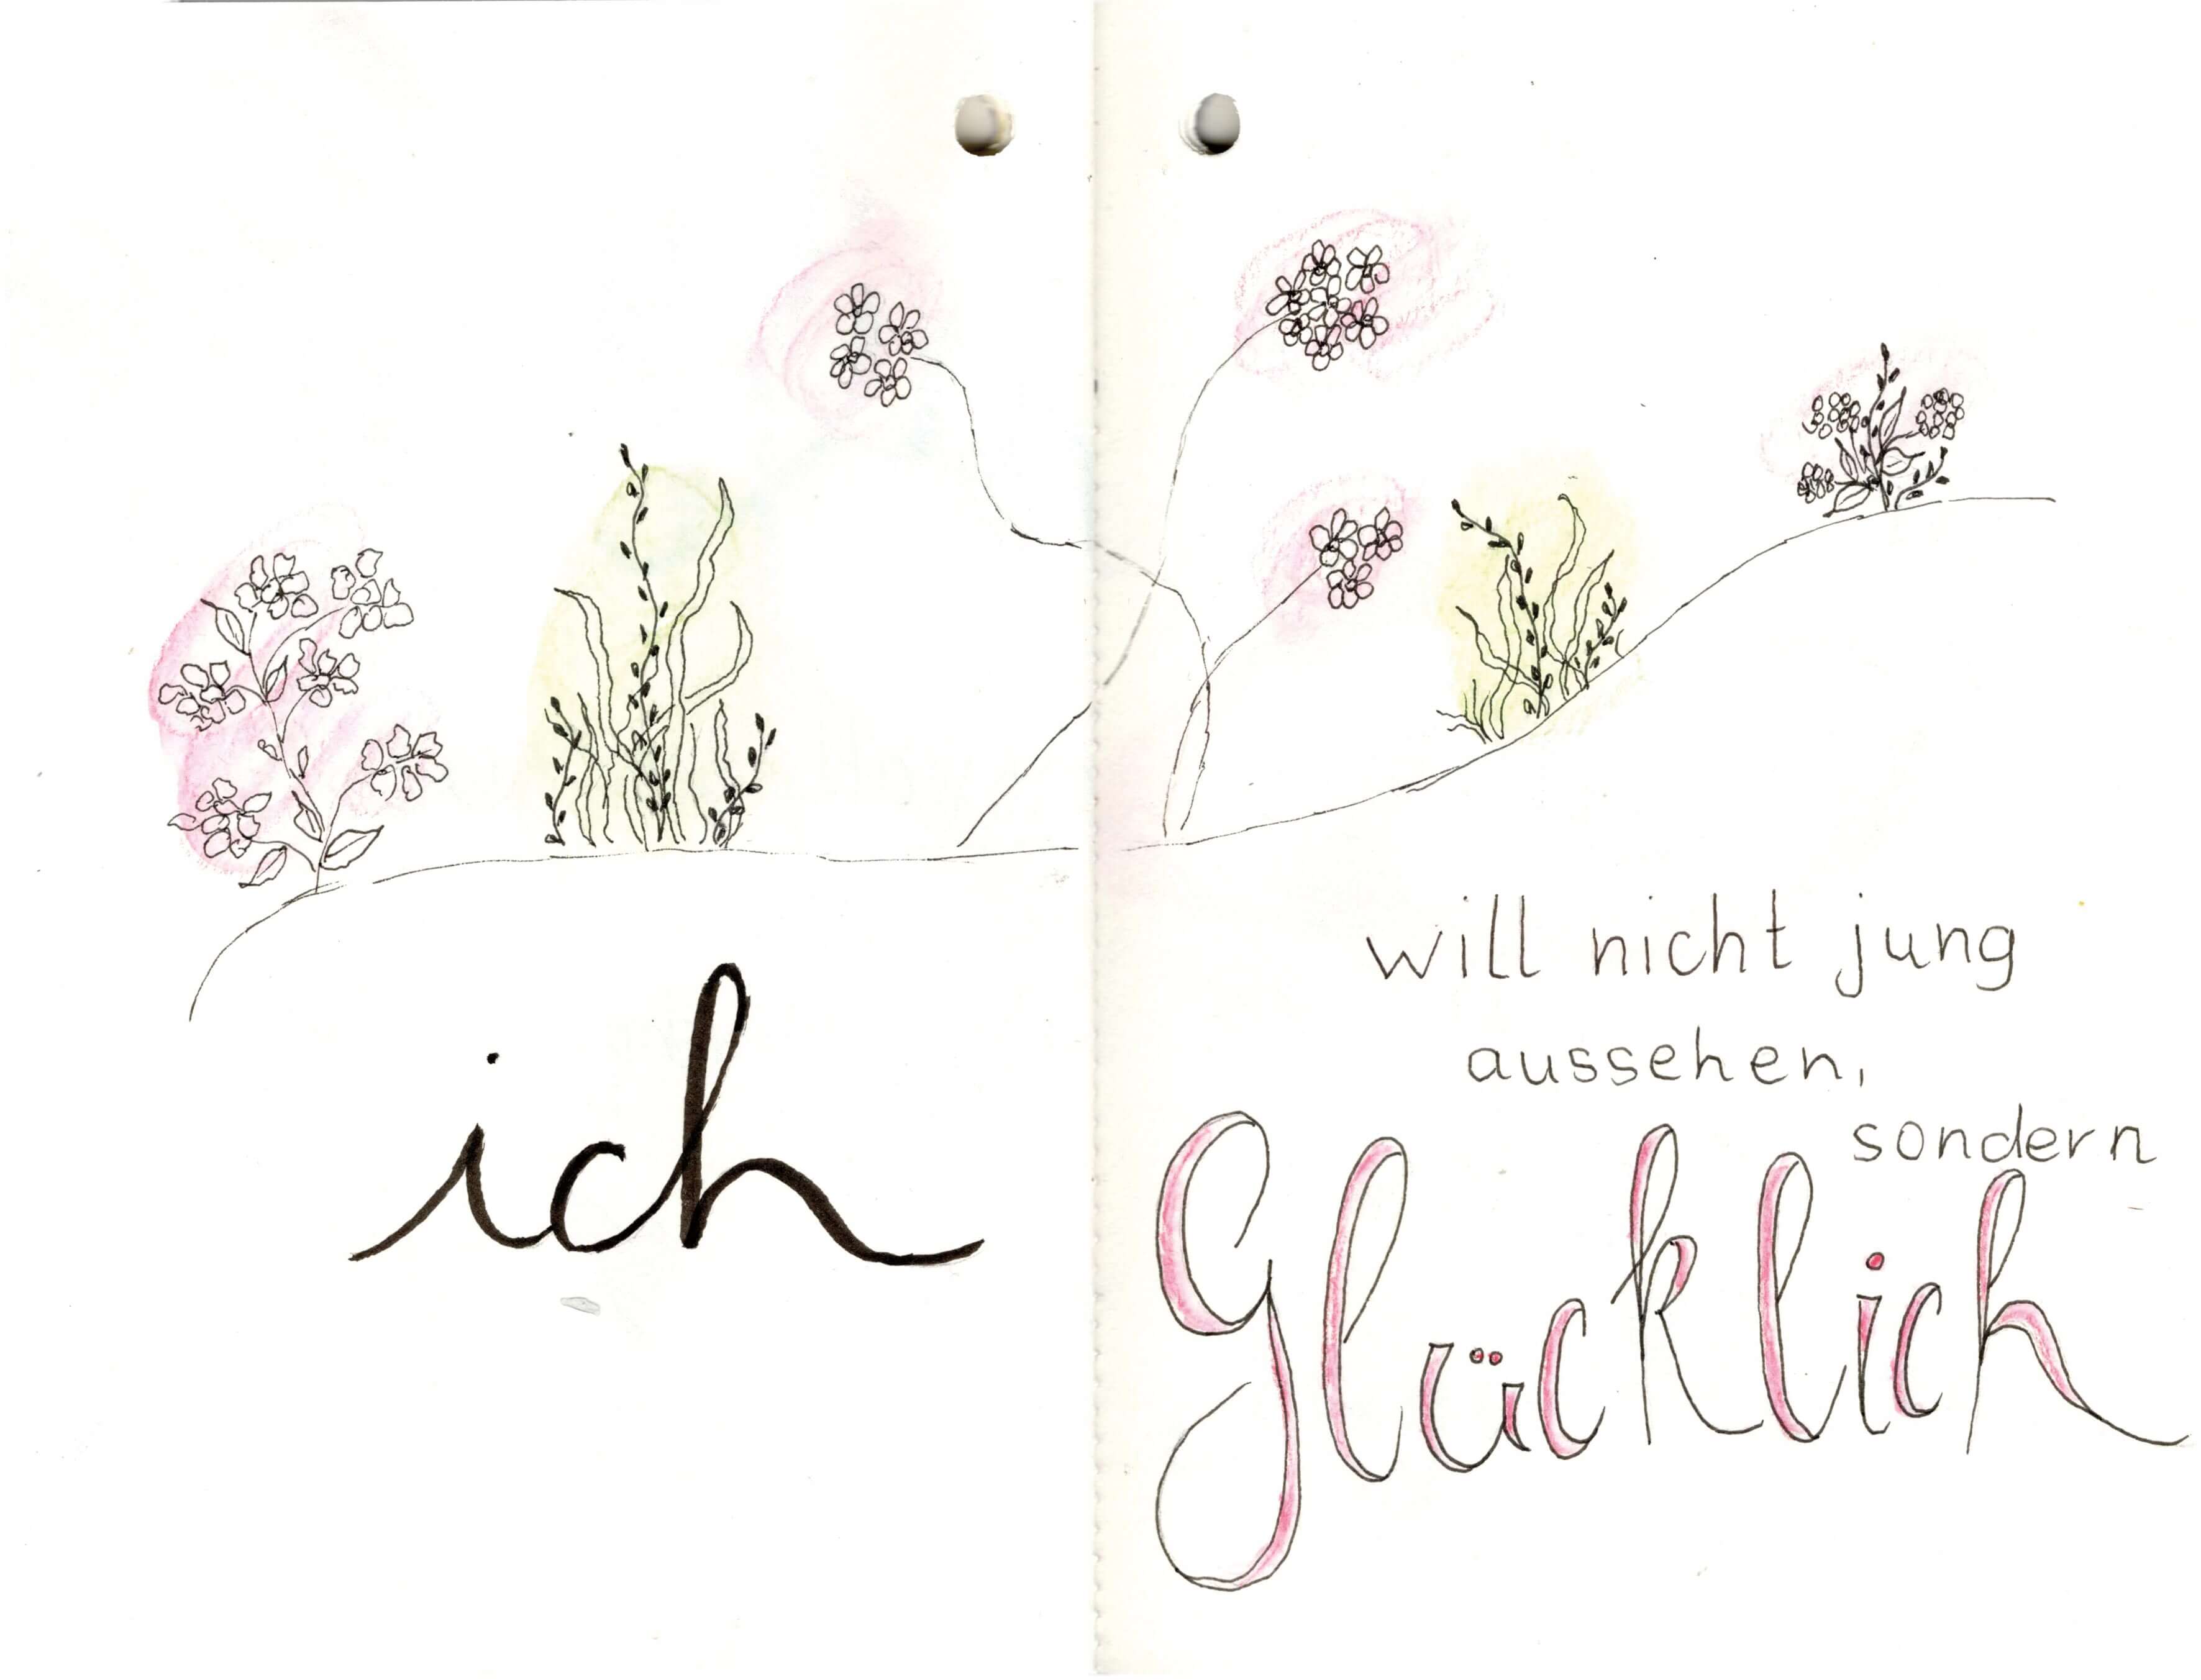 ich
will nicht jung
aussehen,
sondern
Glücklich